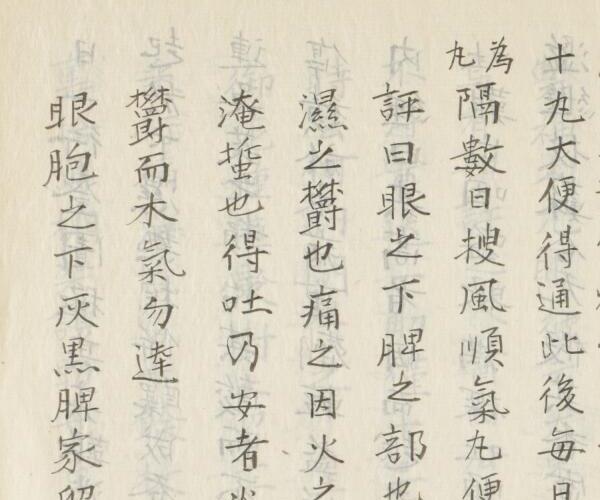 十丸大便得通此後每日
為
丸
隔數日搜風順氣丸便
評曰眼之下脾之部也
濕之欝也痛之因火之
淹蜇也得吐乃安者
欝而木氣勿達
眼胞之下灰黑脾家